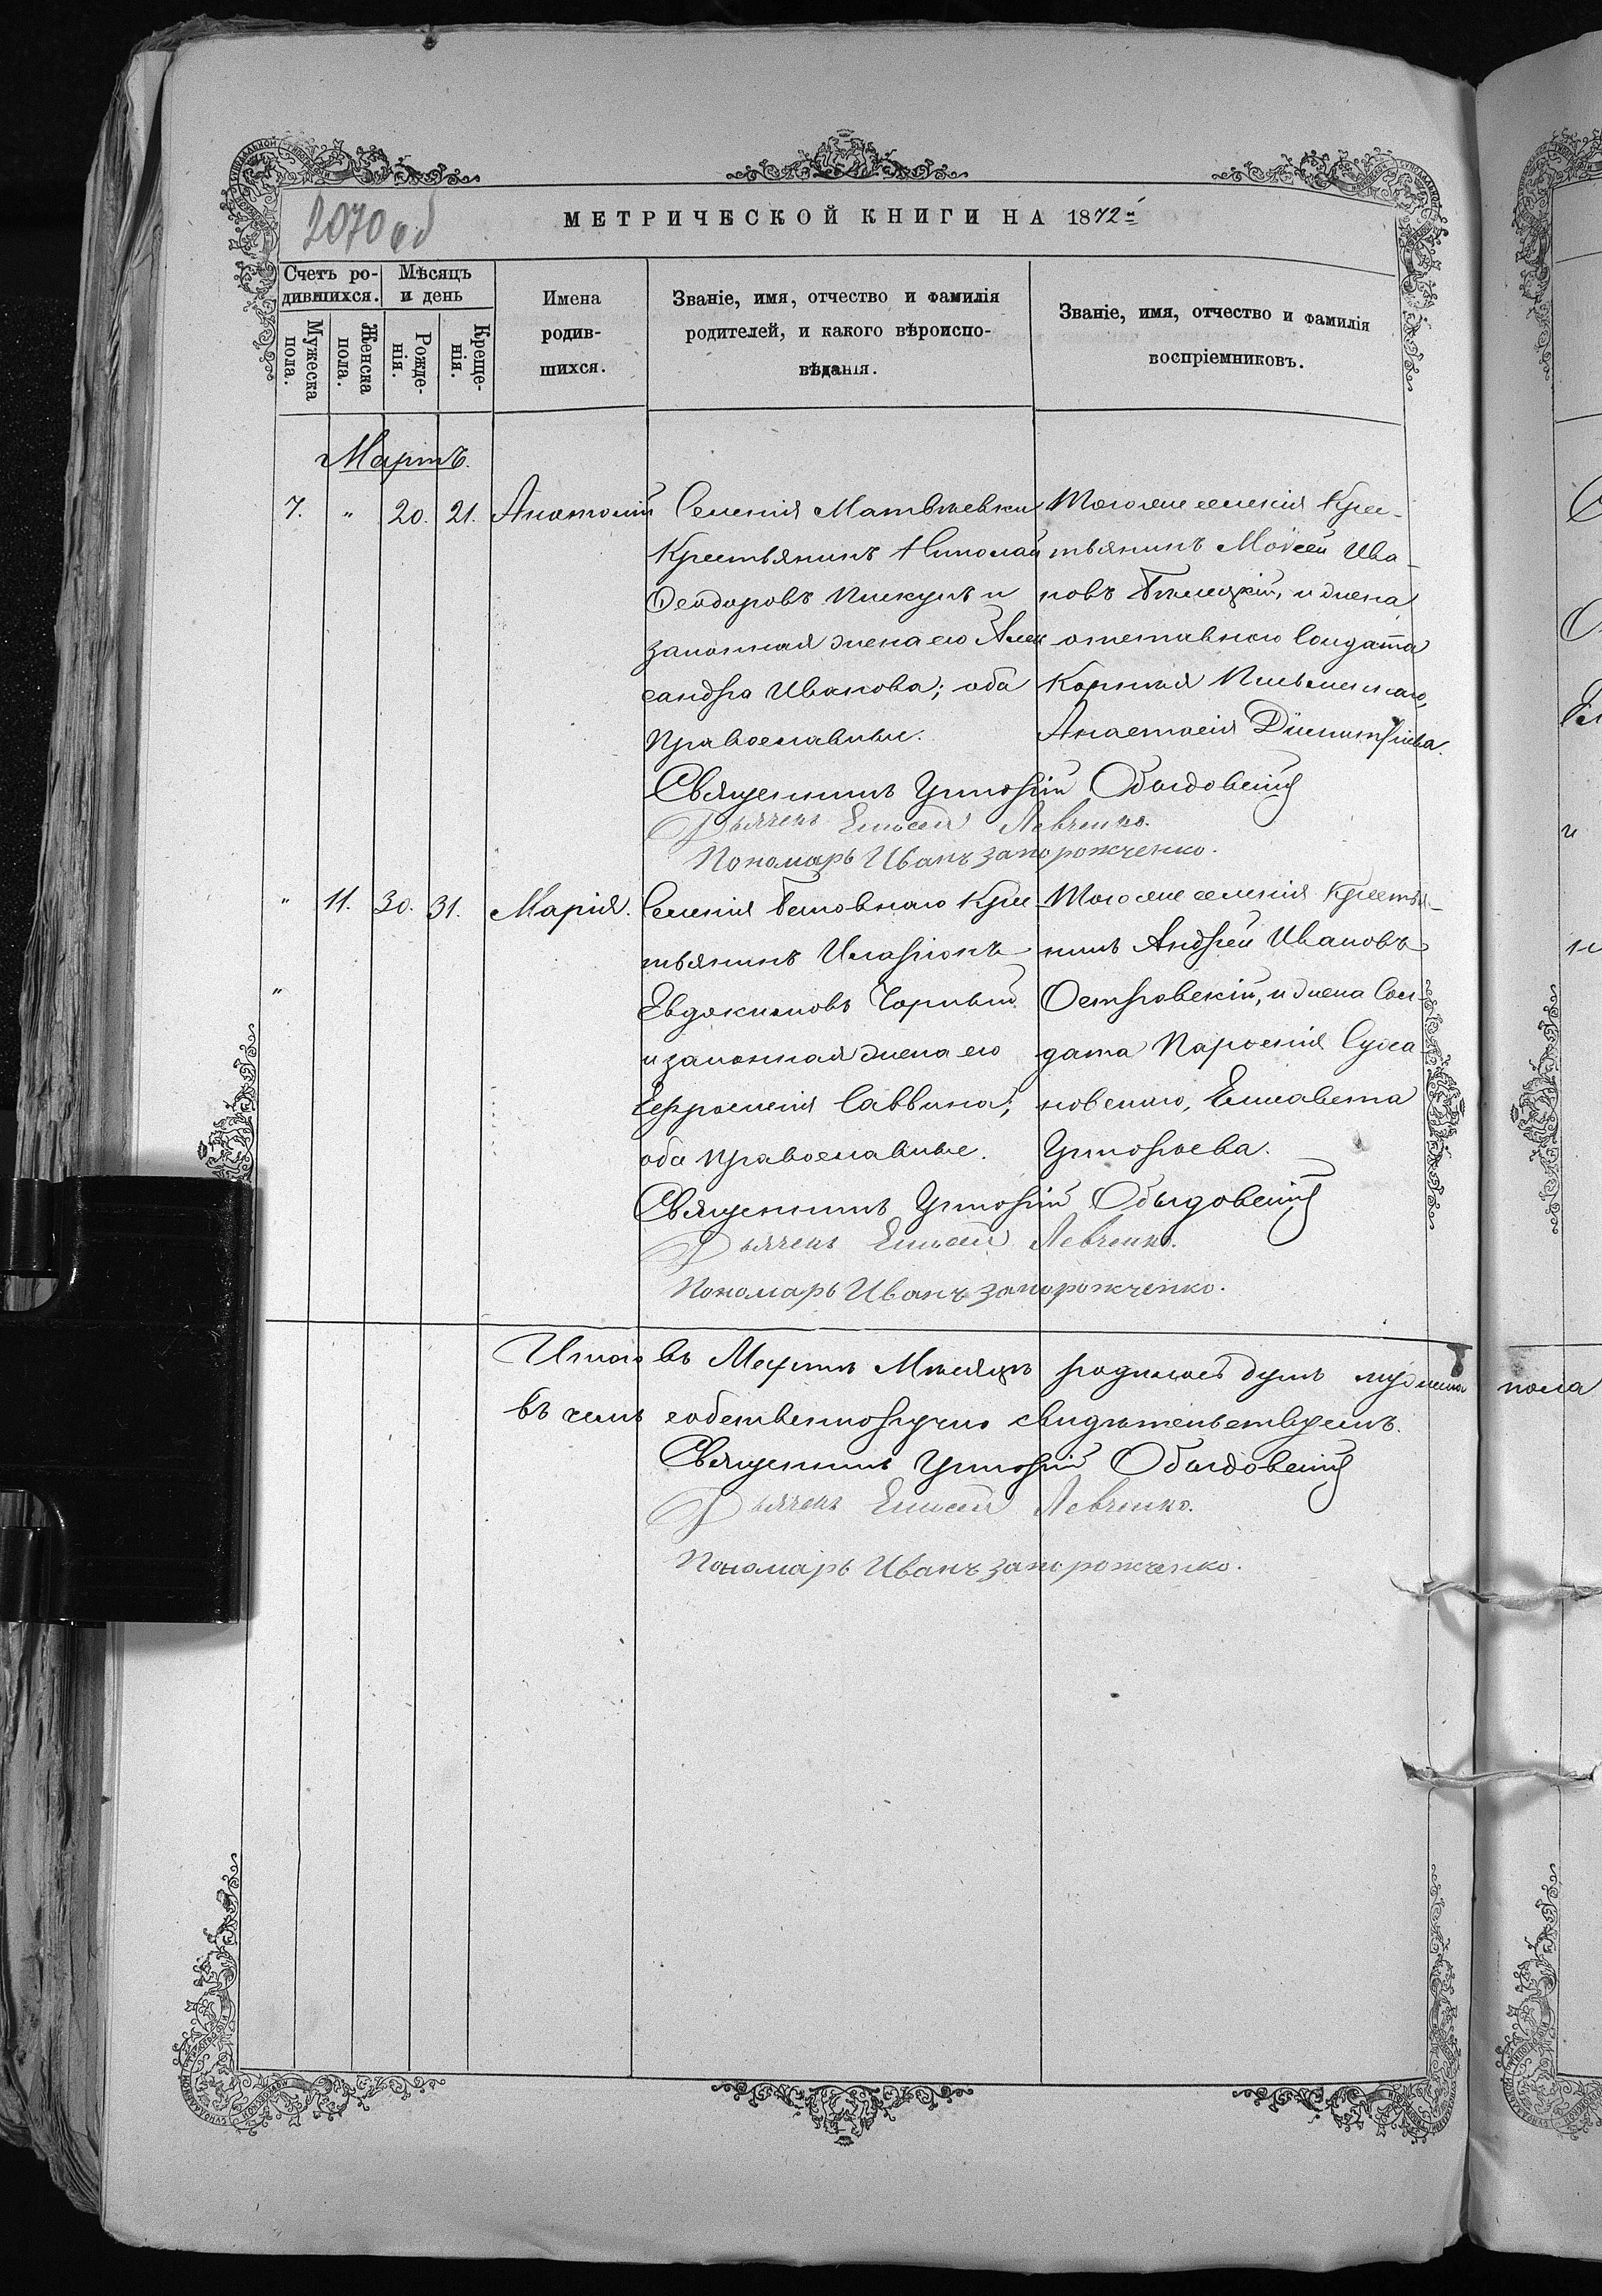 2070 об
МЕТРИЧЕСКОЙ КНИГИ НА 1872й
Счетъ ро-
дившихся.
Мѣсяцъ
и день
Мужеска
пола.
Женска
пола.
Рожде-
нія.
Креще-
нія.
Имена
родив-
шихся.
Званіе, имя, отчество и фамилія
родителей, и какого вѣроиспо-
вѣданія.
Званіе, имя, отчество и фамилія
воспріемниковъ.
Мартъ.
7. " 20. 21. Анатолій
Селенія Матвѣевки
Крестьянинъ Николай
Ѳеодоровъ Пискунъ и
законная жена его Алек
сандра Иванова; оба
православные.
Тогоже селенія Крес-
тьянинъ Моѵсей Ива-
новъ Бѣлецкій, и жена
отставного Солдата
Корнилія Письменнаго,
Анастасія Димитріева.
Священникъ Григорій Обыдовскій
Дьячекъ Елисей Левченко.
Пономарь Иванъ Запорожченко.
" 11. 30. 31. Марія.
Селенія Крес-
тьянинъ Иларіонъ
Евдокимовъ Чорный
и законная жена его
Ефросинія Саввина;
оба православные.
Тогоже селенія Крестья-
нинъ Андрей Ивановъ
Островскій, и жена Сол-
дата Парѳенія
Елисавета
Григорьева.
"
Священникъ Григорій Обыдовскій
Дьячекъ Елисей Левченко.
Пономарь Иванъ Запорожченко.
Итого въ Мартѣ Мѣсяцѣ родилось душъ мужеска пола
въ чемъ собственноручно свидѣтельствуемъ.
Священникъ Григорій Обыдовскій
Дьячекъ Елисей Левченко.
Пономарь Иванъ Запорожченко.